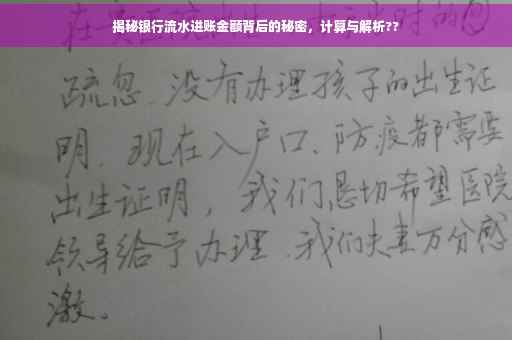 揭秘银行流水进账金额背后的秘密，计算与解析??
疏忽、没有办理孩子的出生证
明。现在入户口、防疫都需要
出生证明，我们恳切希望医院
领导给予办理、我们夫妻万分感
激。